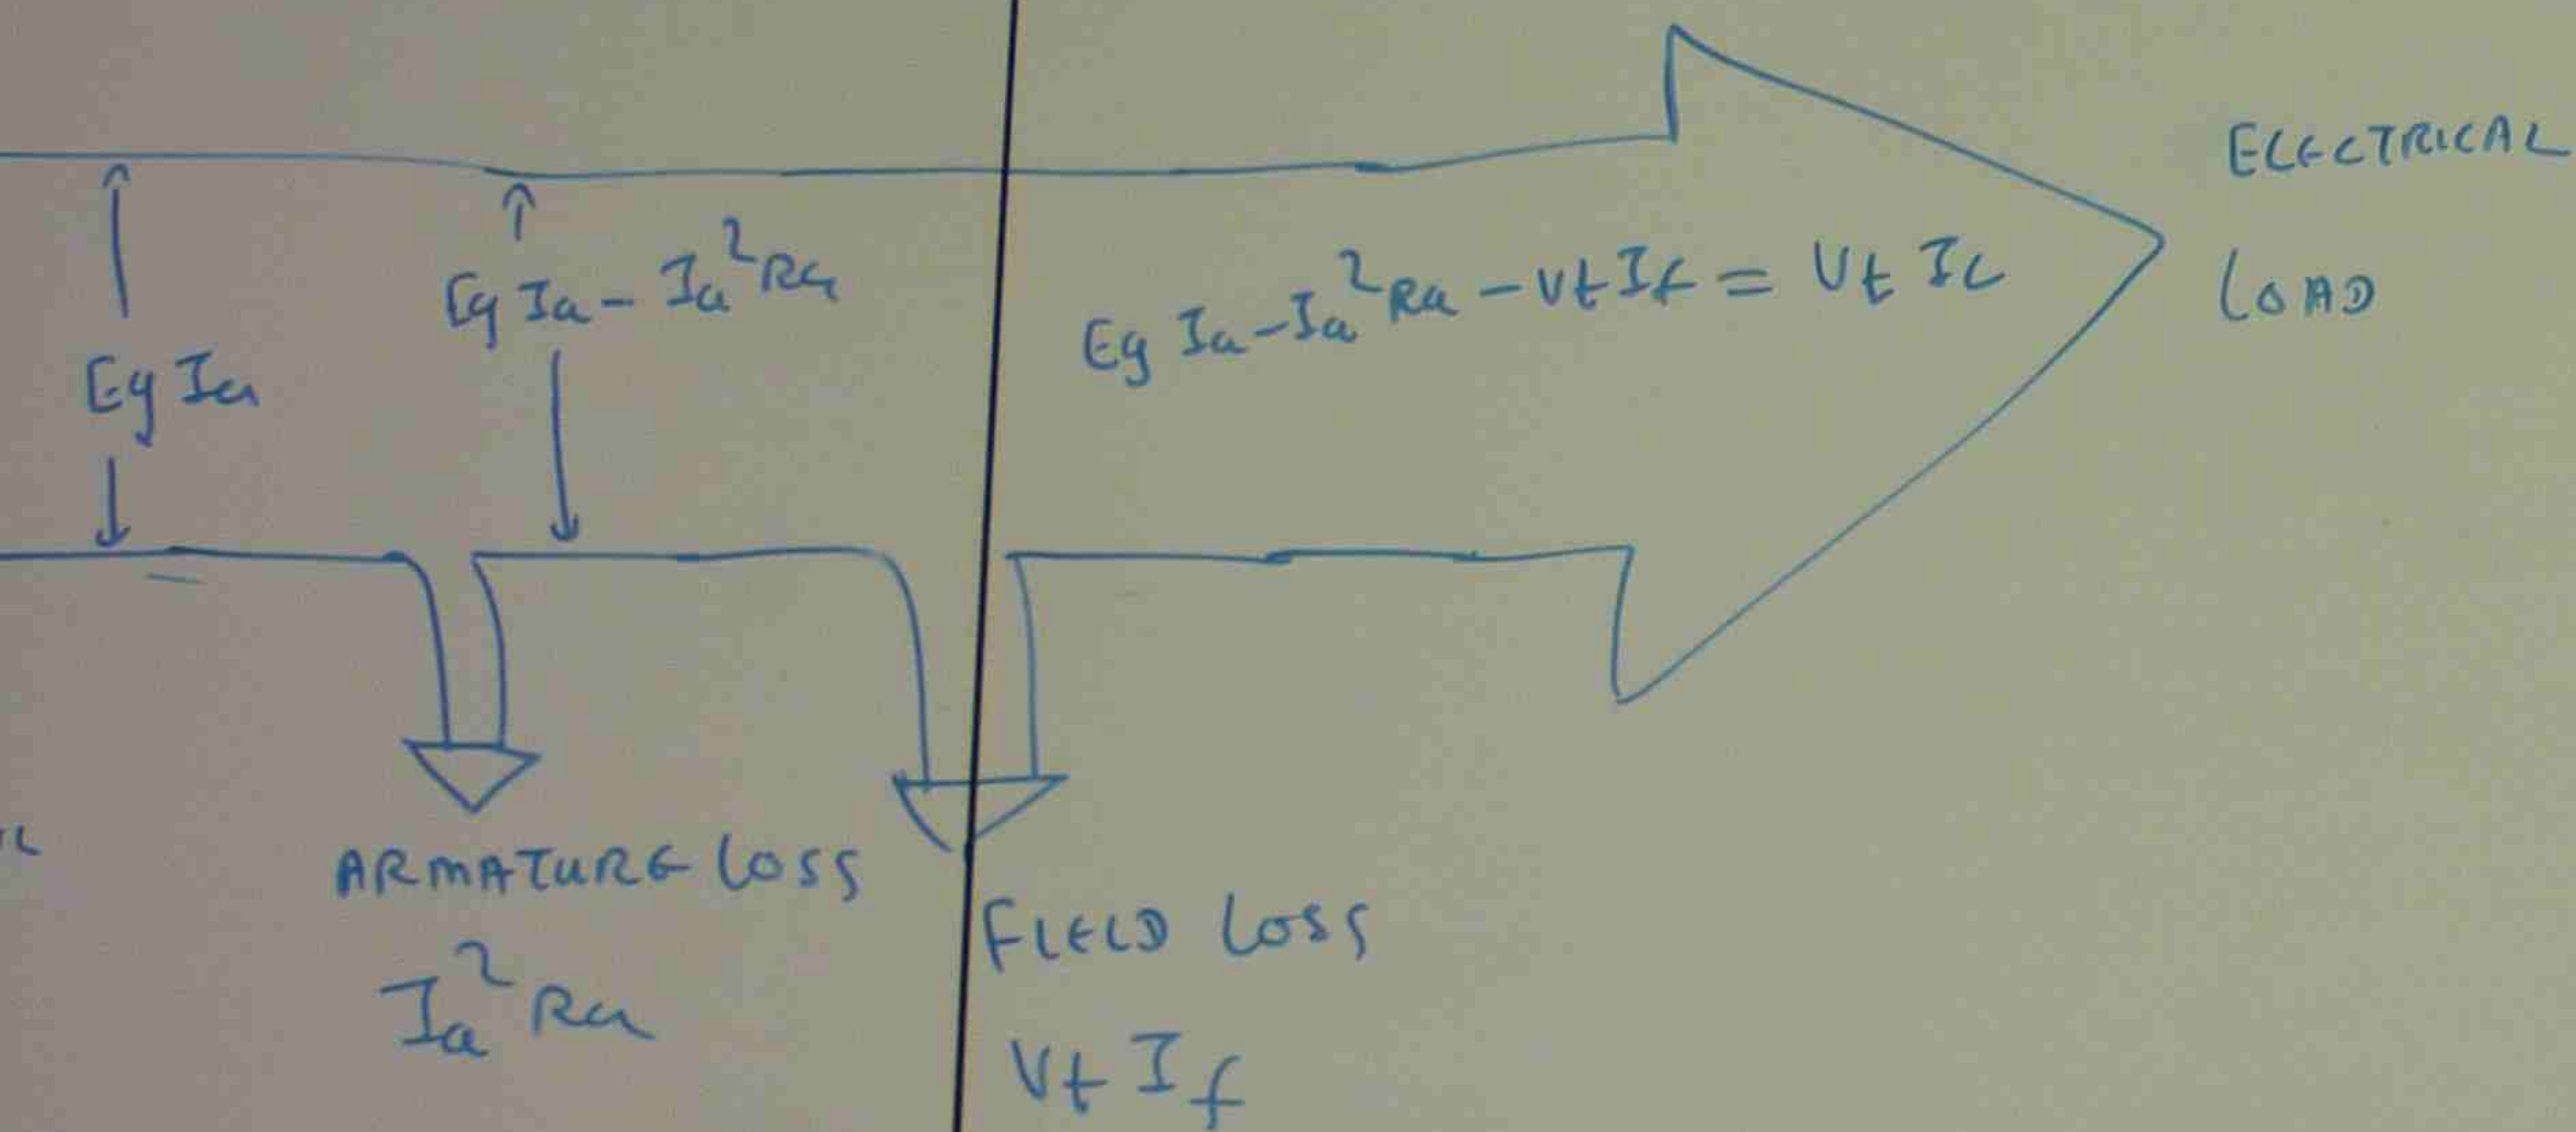 ELECTRICAL
LOAD
Eg Ia
Eg Ia - Ia²Ra
Eg Ia - Ia²Ra - Vt If = Vt IL
ARMATURE LOSS
Ia² Ra
FIELD LOSS
Vt If